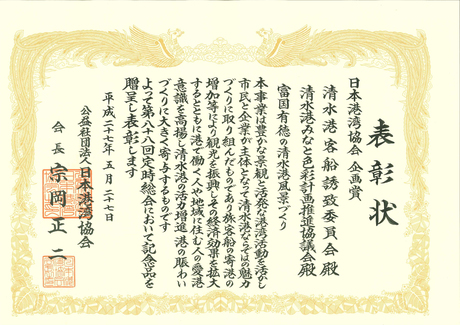 表彰状
日本港湾協会 企画賞
清水港客船誘致委員会殿
清水港みなと色彩計画推進協議会殿
富国有徳の清水港風景づくり
本事業は豊かな景観と活発な港湾活動を活かし
市民と企業が主体となって清水港ならではの魅力
づくりに取り組んだものであり旅客船の寄港の
増加等により観光を振興しその経済効果を拡大
するとともに港で働く人や地域に住む人の愛港
意識を高揚し清水港の活力増進港の賑わい
づくりに大きく寄与するものです
よって第八十八回定時総会において記念品を
贈呈し表彰します
平成二十七年五月二十七日
公益社団法人日本港湾協会
会長 宗岡正二